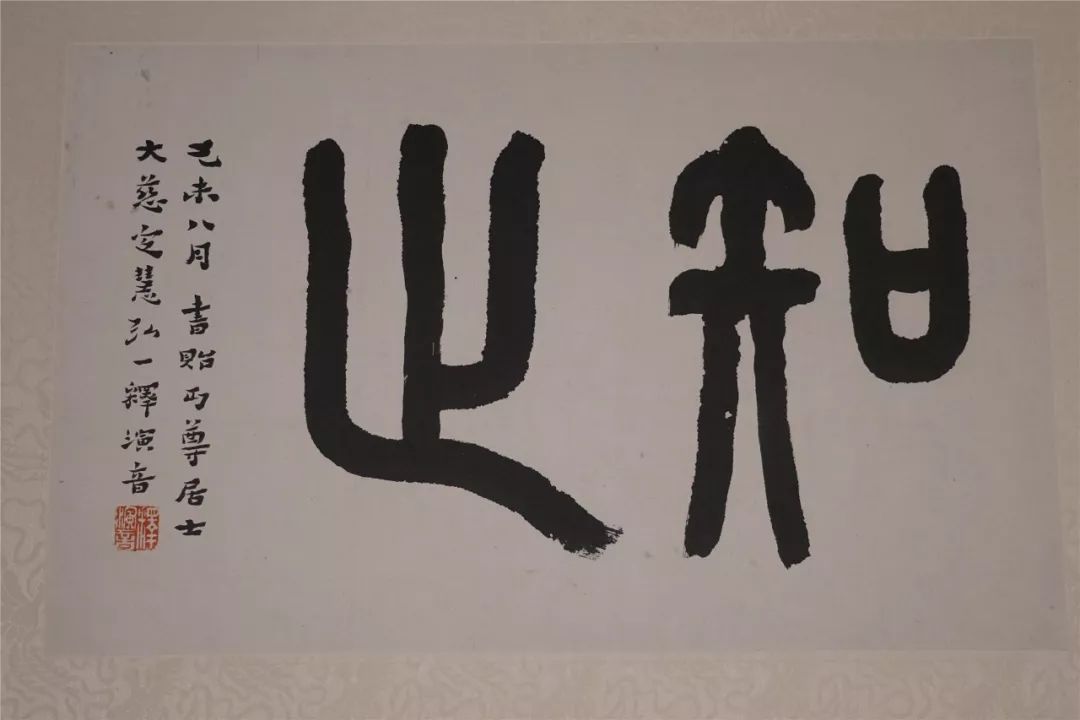 知止
己未八月 書貽丏尊居士
大慈定慧弘一釋演音
釋演音